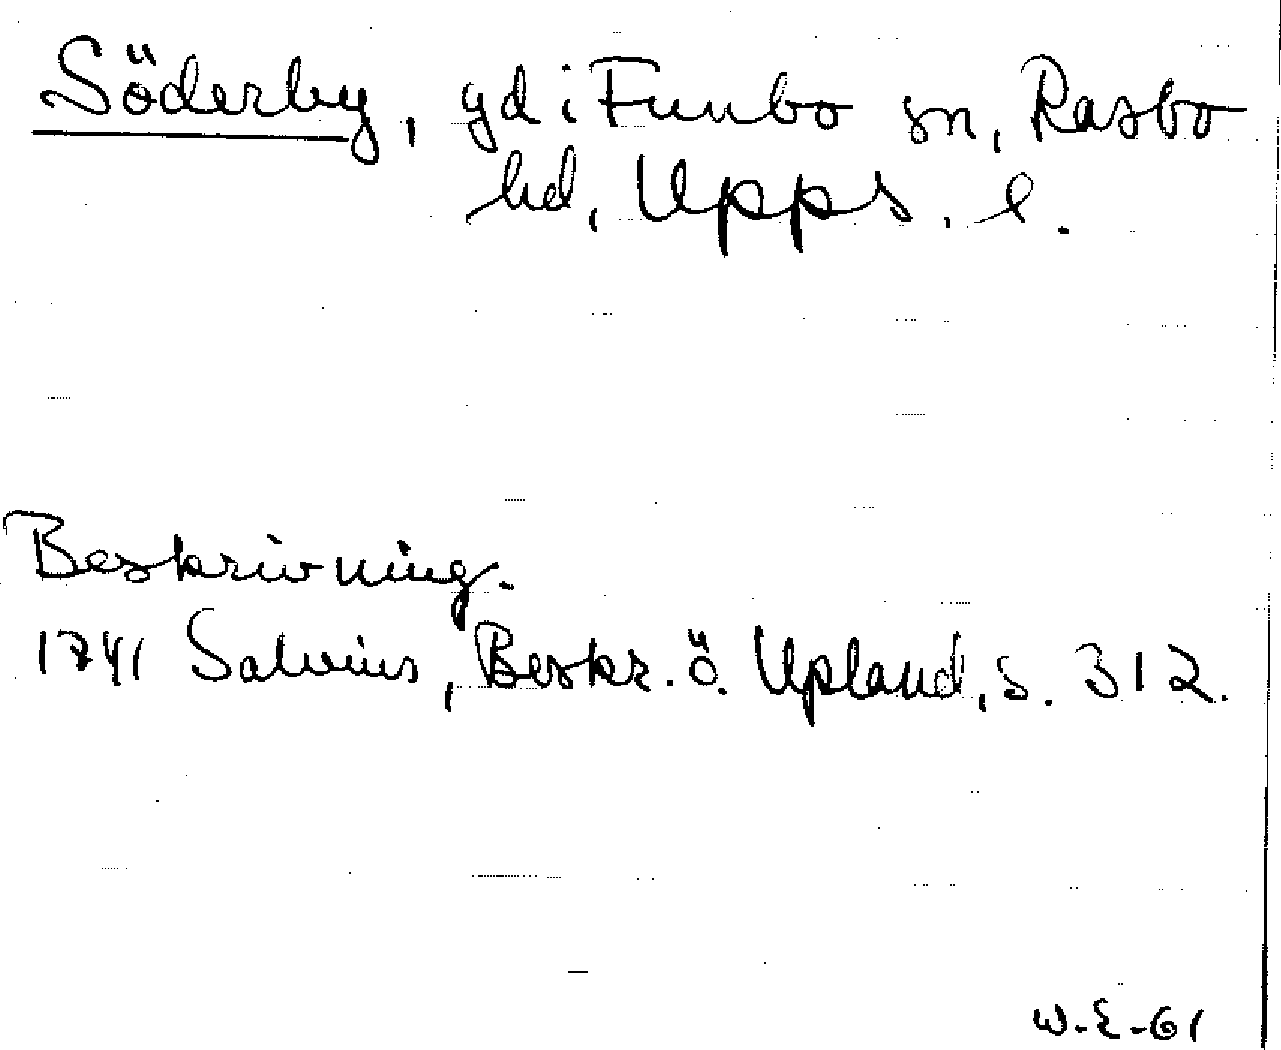 Söderby, gd i Funbo sn, Rasbo
hd, Upps. l.
Beskrivning.
1741 Salvius, Beskr. ö. Upland, s. 312.
W.E-61